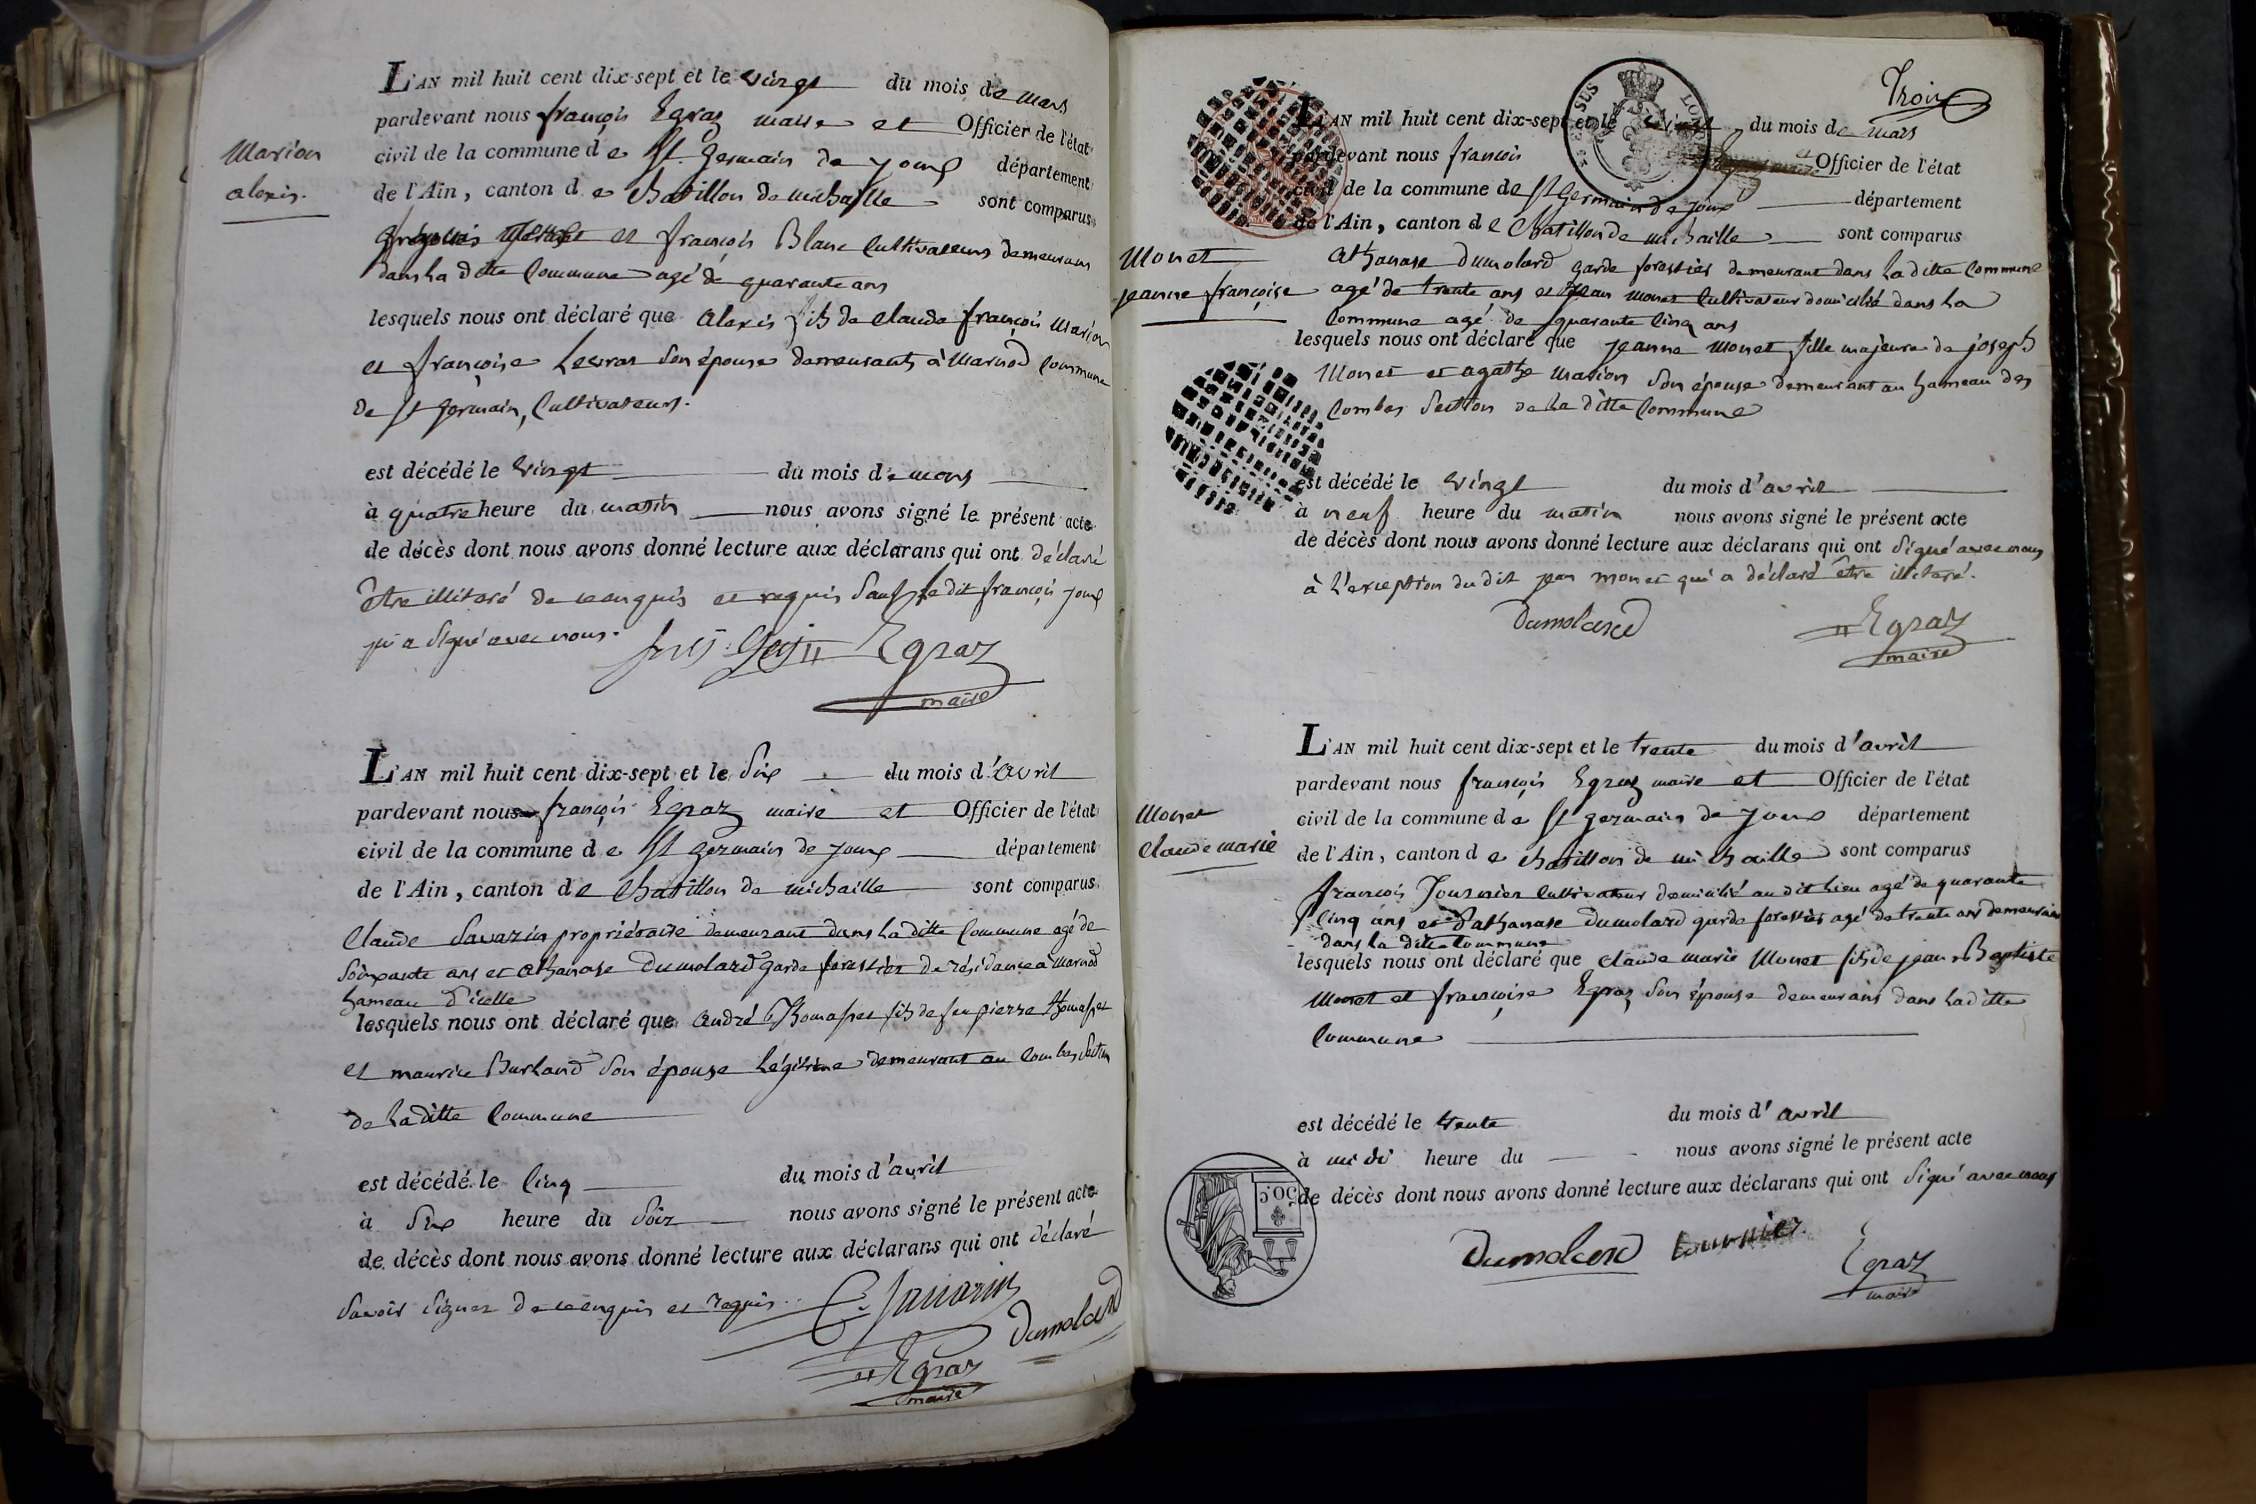 L'AN mil huit cent dix-sept et le vingt du mois de mars
pardevant nous françois Egraz maire et Officier de l'état
civil de la commune de St. germain de joux département
de l'Ain, canton de chatillon de michaille sont comparus
Marion
alexis.
et françois Blanc Cultivateurs demeurans
dans la ditte Commune agé de quarante ans
lesquels nous ont déclaré que alexis fils de claude françois Marion
et françoise Levrat son épouse demeurants à Marnod Commune
de St germain, Cultivateurs.
est décédé le vingt du mois de mars
à quatre heure du matin nous avons signé le présent acte
de décès dont nous avons donné lecture aux déclarans qui ont déclaré
être illitaré de ce enquis et requis Sauf le dit françois joux
qui a Signé avec nous.
Egraz
maire
L'AN mil huit cent dix-sept et le Six du mois d'avril
pardevant nous françois Egraz maire et Officier de l'état
civil de la commune de St germain de joux département
de l'Ain, canton de chatillon de michaille sont comparus
Claude Savarin propriétaire demeurant dans la ditte Commune agé de
Soixante ans et athanase Dumolard garde forestier de résidance à marnod
hameau d'icelle
lesquels nous ont déclaré que andré Thomasset fils de feu pierre Thomasset
et maurice Burland Son épouse légitime demeurant au Combes Section
de la ditte Commune
est décédé le Cinq du mois d'avril
à Six heure du Soir nous avons signé le présent acte
de décès dont nous avons donné lecture aux déclarans qui ont déclaré
Savoir Signer de ce enquis et requis.
C. Savarin
Dumolard
Egraz
maire
Trois
L'AN mil huit cent dix-sept et le vingt du mois de mars
pardevant nous françois et Officier de l'état
civil de la commune de St Germain de joux département
de l'Ain, canton de Chatillon de michaille sont comparus
Monet
jeanne françoise
athanase Dumolard garde forestier demeurant dans la ditte Commune
agé de trente ans et Jean monet Cultivateur domicilié dans la
Commune agé de quarante Cinq ans
lesquels nous ont déclaré que jeanne Monet fille majeure de joseph
Monet et agathe Marion Son épouse demeurant au hameau des
Combes Section de la ditte Commune
est décédé le vingt du mois d'avril
à neuf heure du matin nous avons signé le présent acte
de décès dont nous avons donné lecture aux déclarans qui ont Signé avec nous
à l'exception du dit jean monet qui a déclaré être illitaré.
Dumolard
Egraz
maire
L'AN mil huit cent dix-sept et le trente du mois d'avril
pardevant nous françois Egraz maire et Officier de l'état
civil de la commune de St germain de joux département
de l'Ain, canton de chatillon de michaille sont comparus
Monet
Claude marie
françois Tournier Cultivateur domicilié au dit lieu agé de quarante
Cinq ans et d'athanase Dumolard garde forestier agé de trente ans demeurans
dans la ditte Commune
lesquels nous ont déclaré que claude marie Monet fils de jean Baptiste
Monet et françoise Egraz Son épouse demeurans dans la ditte
Commune
est décédé le trente du mois d'avril
à midi heure du nous avons signé le présent acte
de décès dont nous avons donné lecture aux déclarans qui ont Signé avec nous
50 C.
Dumolard tournier.
Egraz
maire